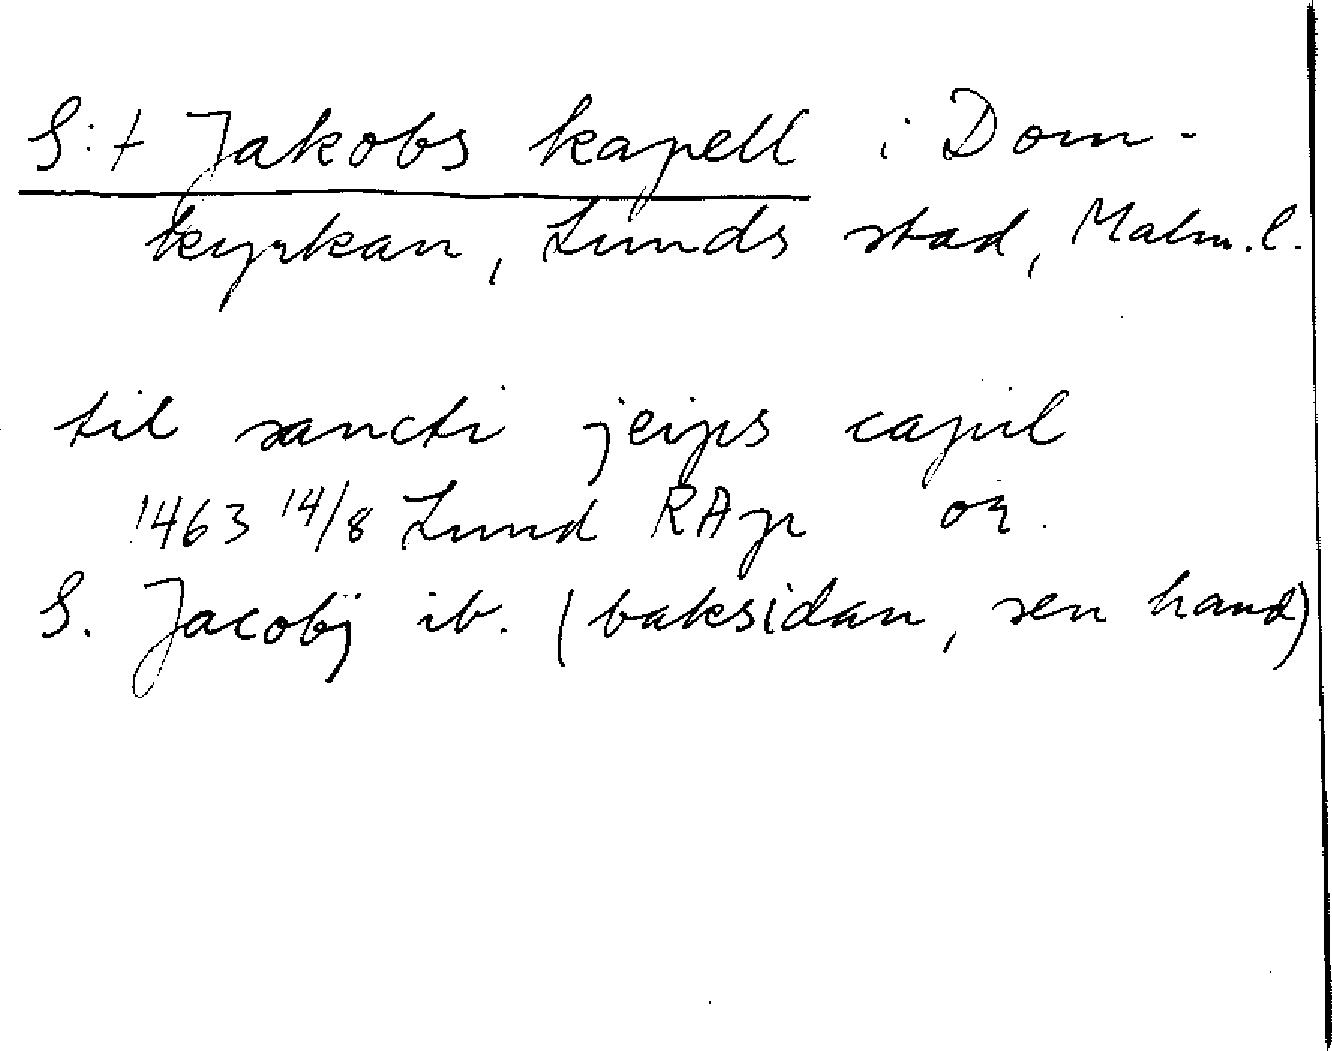 S:t Jakobs kapell i Dom-
kyrkan, Lunds stad, Malm. l.
til sancti jeips capil
1463 14/8 Lund RAp or.
S. Jacobj ib. (baksidan, sen hand)